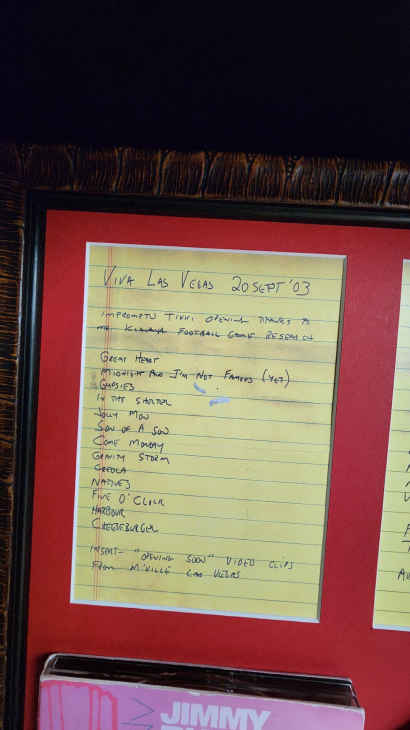 VIVA LAS VEGAS 20 SEPT '03
IMPROMPTU TIKKI OPENING THANKS TO
MR FOOTBALL GAME RESEARCH
GREAT HEART
MIDNIGHT AND I'M NOT FAMOUS (YET)
GYPSIES
IN THE SHELTER
JOLLY MON
SON OF A SON
COME MONDAY
GRAVITY STORM
CREOLA
NATIVES
FIVE O'CLOCK
HARBOUR
CHEEZEBURGER
INSERT- "OPENING SOON" VIDEO CLIPS
FROM M'VILLE LAS VEGAS
JIMMY